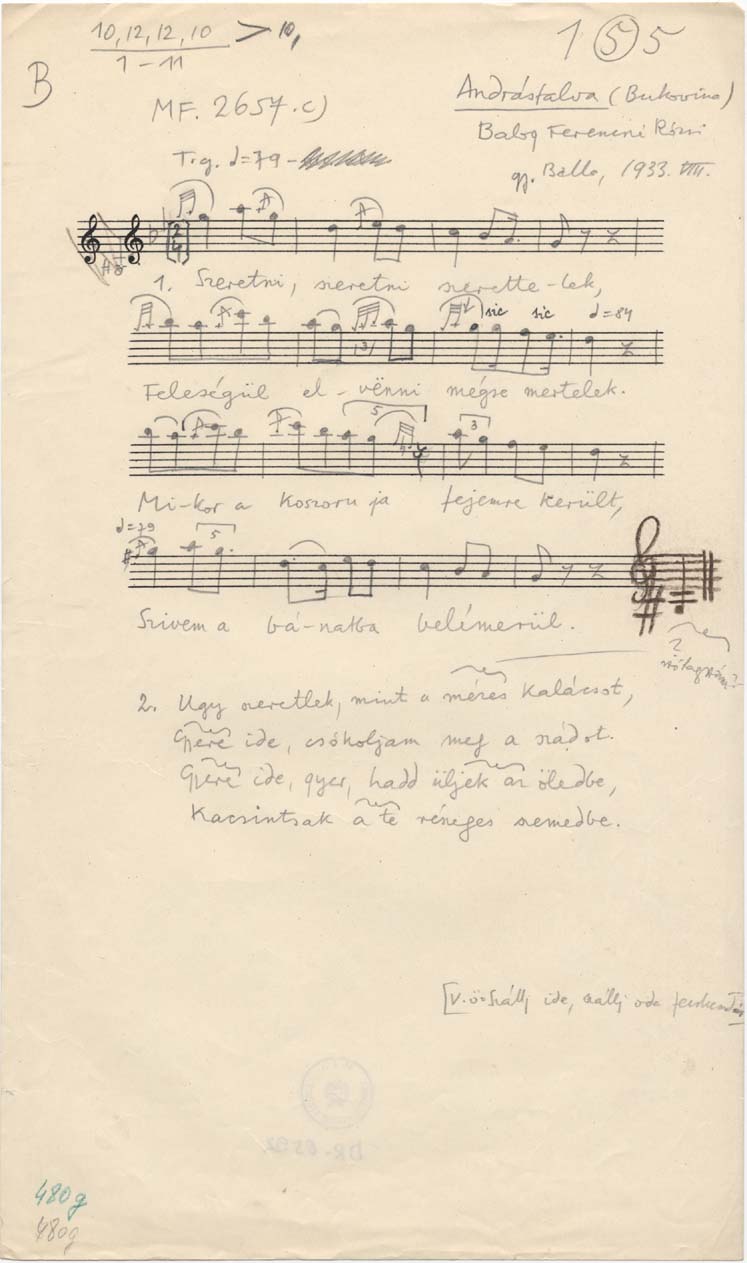 10, 12, 12, 10 > 10,
1 – 11
1 5 5
B
MF. 2657. c)
Andrásfalva (Bukovina)
Ferencné Rózsi
T.g. ♩=79 –
gy. Balla, 1933. VIII.
2/4
1. Szeretni, szeretni szerette-lek,
sic sic ♩=84
3
Feleségül el-vënni mégse mertelek.
5 3
Mi-kor a koszoru ja fejemre került,
♩=79 5
Szivem a bá-natba belémerül.
?
2. Ugy szeretlek, mint a mézes kalácsot,
Gyere ide, csókoljam meg a szádot.
Gyere ide, gyer, hadd üljek az öledbe,
Kacsintsak a te részeges szemedbe.
[V.ö. Szállj ide, szállj oda
480g
480g